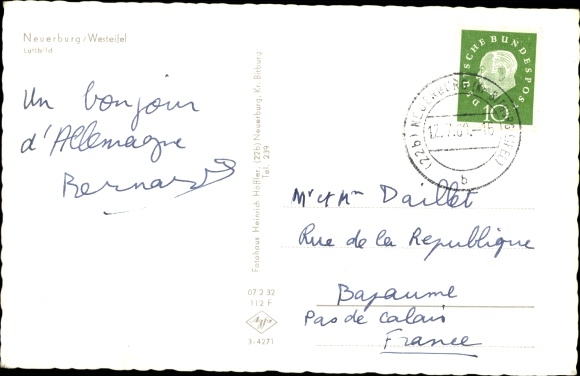 Neuerburg/Westeifel
Luftbild
Un bonjour
d'Allemagne
Bernard
Fotohaus Heinrich Höffler, (22b) Neuerburg, Kr. Bitburg
Tel. 239
07 2 32
112 F
Agfa
3-4271
DEUTSCHE BUNDESPOST
10
(22b) NEUERBURG
12.7.60-15
b
Mr et Mme Daillet
Rue de la Republique
Bapaume
Pas de Calais
France